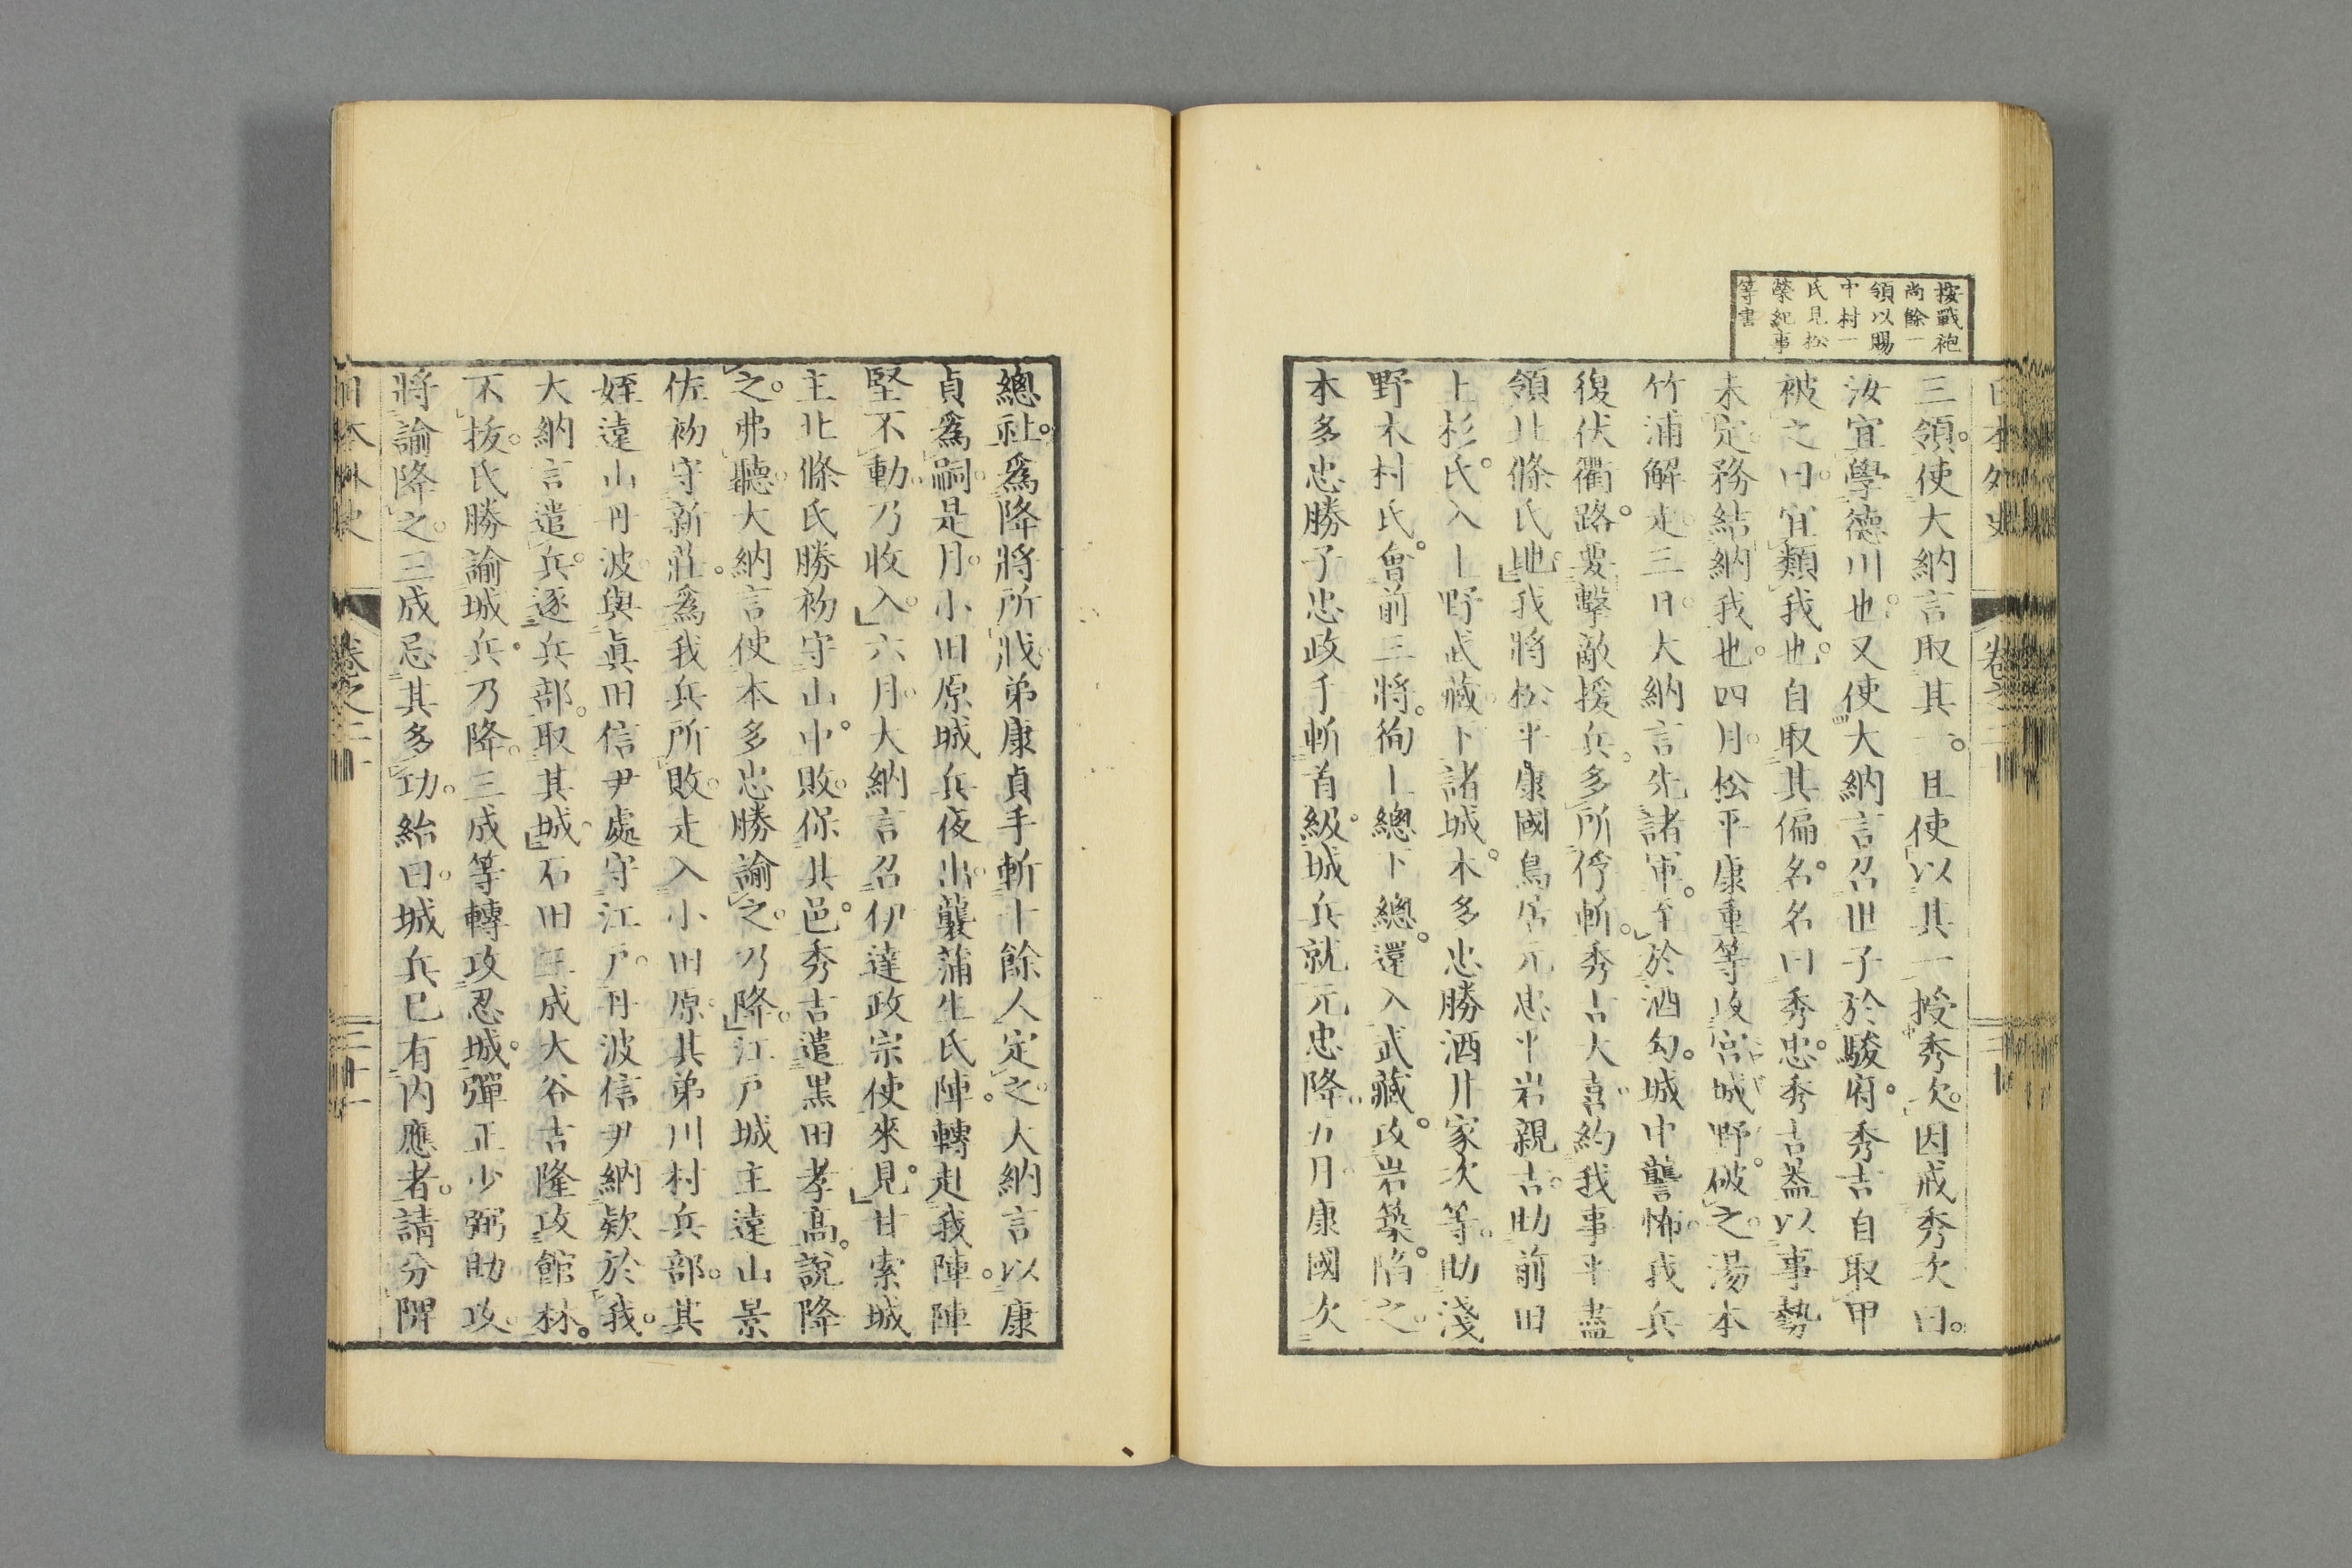 按戰袍
尚餘一
領以賜
中村一
氏見松
榮紀事
等書
三領。使大納言取其一。且使以其一授秀次。因戒秀次曰。
汝宜學德川也。又使大納言召世子於駿府。秀吉自取甲
被之。曰。宜類我也。自取其偏名。名曰秀忠。秀吉蓋以事勢
未定。務結納我也。四月。松平康重等攻宮城野。破之。湯本
竹浦解走。三日。大納言先諸軍。至於酒勾。城中讋怖。我兵
復伏衢路。要擊敵援兵。多所俘斬。秀吉大喜。約我事平盡
領北條氏地。我將松平康國鳥居元忠平岩親吉。助前田
上杉氏。入上野武藏下諸城。本多忠勝酒井家次等。助淺
野木村氏。會前三將。徇上總下總。還入武藏。攻岩築。陷之。
本多忠勝子忠政手斬首級。城兵就元忠降。五月。康國次
總社。爲降將所戕。弟康貞手斬十餘人定之。大納言以康
貞爲嗣。是月。小田原城兵夜出。襲蒲生氏陣。轉赴我陣。陣
堅不動。乃收入。六月。大納言召伊達政宗使來見。甘索城
主北條氏勝初守山中。敗。保其邑。秀吉遣黑田孝高。說降
之。弗聽。大納言使本多忠勝諭之。乃降。江戶城主遠山景
佐初守新莊。爲我兵所敗。走入小田原。其弟川村兵部。其
姪遠山丹波。與眞田信尹處守江戶。丹波信尹納欵於我。
大納言遣兵。逐兵部。取其城。石田三成大谷吉隆攻館林。
不拔。氏勝諭城兵。乃降。三成等轉攻忍城。彈正少弼助攻。
將諭降之。三成忌其多功。紿曰。城兵已有內應者。請分門
日本外史
卷之二十
三十一